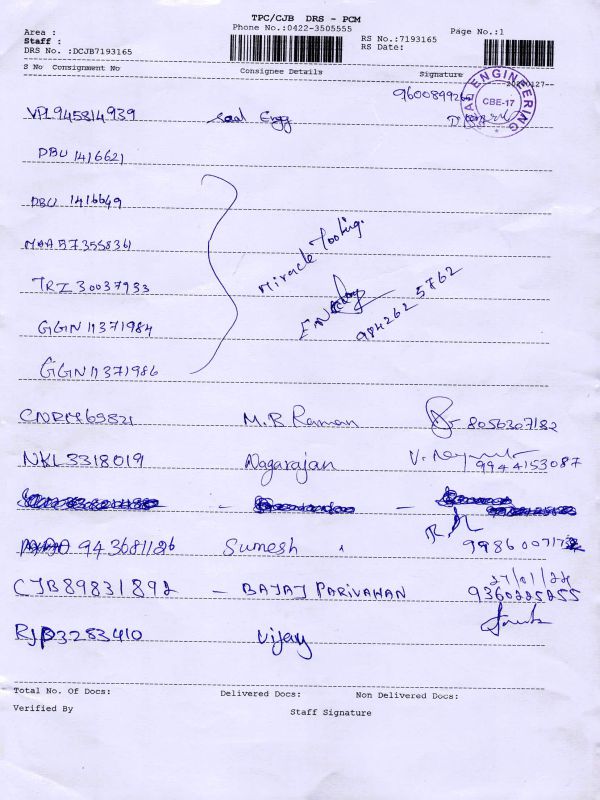 TPC/CJB DRS - PCM
Phone No.:0422-3505555
Area :
Staff :
DRS No. :DCJB7193165
RS No.:7193165
RS Date:
Page No.:1
S No Consignment No Consignee Details Signature
ENGINEERING
CBE-17
VPL945814939 Seal Engg
DBU 1416621
DBU 1416649
MAA573558361
TRZ 30037933
GGN 11371984
GGN 11371986
Miracle Tooling.
984262 5862
M.B Raman 8056307182
NKL3318019 Nagarajan 9944153087
943681126 Sumesh
CJB89831892 - BAJAJ PARIVAHAN 9360225255
RJP3283410 Vijay
Total No. Of Docs: Delivered Docs: Non Delivered Docs:
Verified By Staff Signature